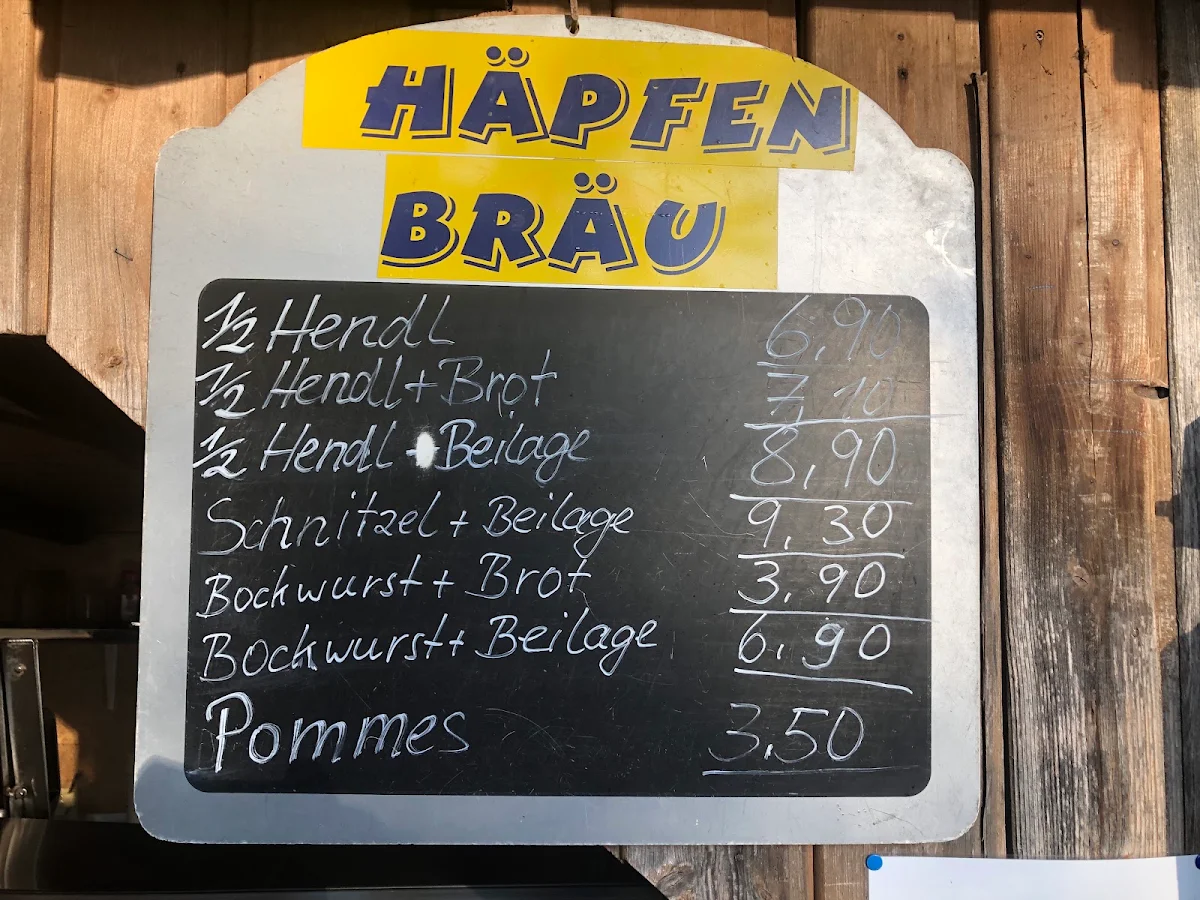 HÄPFEN
BRÄU
1/2 Hendl 6,90
1/2 Hendl + Brot 7,10
1/2 Hendl + Beilage 8,90
Schnitzel + Beilage 9,30
Bockwurst + Brot 3,90
Bockwurst + Beilage 6,90
Pommes 3,50